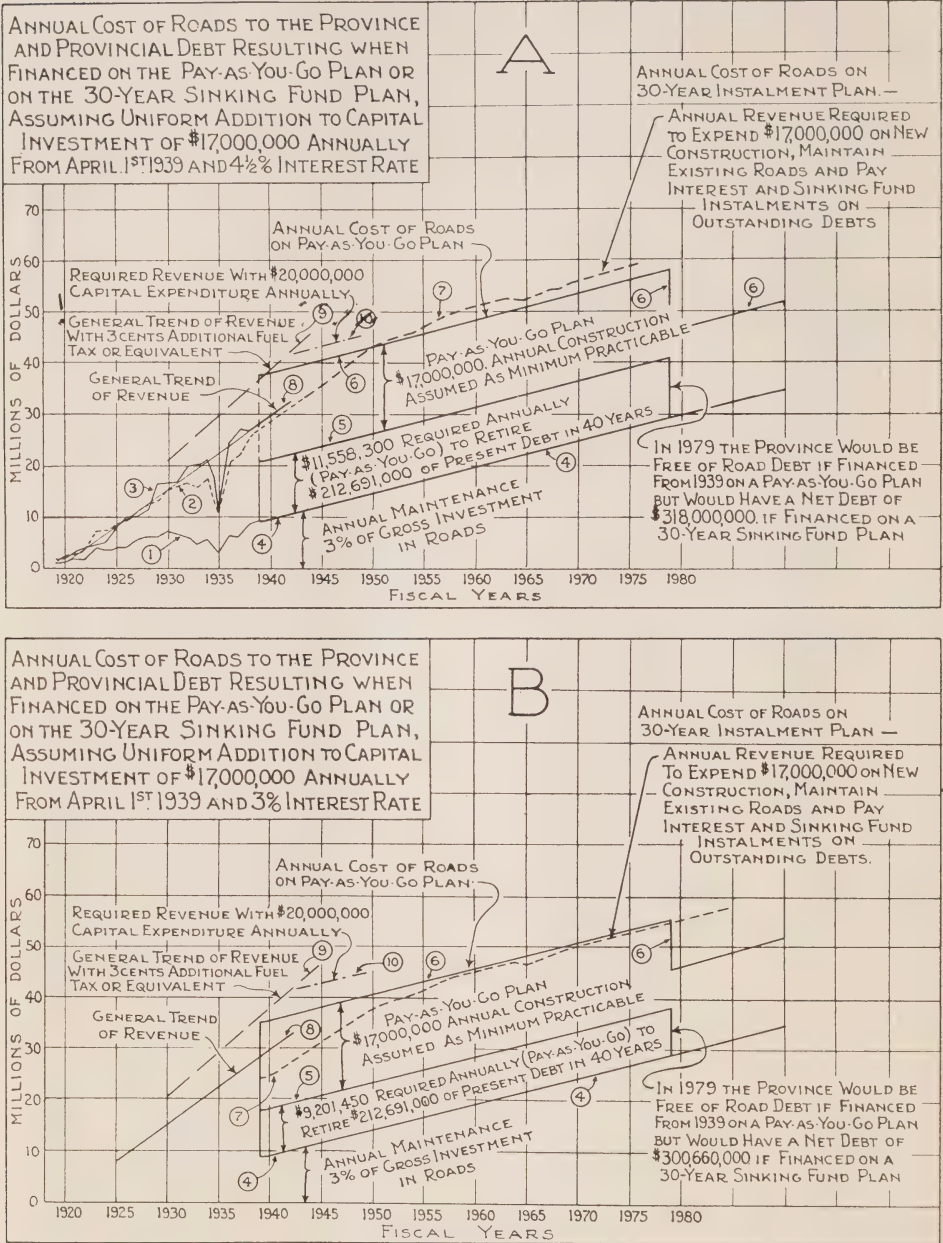 ANNUAL COST OF ROADS TO THE PROVINCE
AND PROVINCIAL DEBT RESULTING WHEN
FINANCED ON THE PAY-AS-YOU-GO PLAN OR
ON THE 30-YEAR SINKING FUND PLAN,
ASSUMING UNIFORM ADDITION TO CAPITAL
INVESTMENT OF $17,000,000 ANNUALLY
FROM APRIL 1ST 1939 AND 4½% INTEREST RATE
A
ANNUAL COST OF ROADS ON
30-YEAR INSTALMENT PLAN.—
ANNUAL REVENUE REQUIRED
TO EXPEND $17,000,000 ON NEW
CONSTRUCTION, MAINTAIN
EXISTING ROADS AND PAY
INTEREST AND SINKING FUND
INSTALMENTS ON
OUTSTANDING DEBTS
ANNUAL COST OF ROADS
ON PAY-AS-YOU-GO PLAN
REQUIRED REVENUE WITH $20,000,000
CAPITAL EXPENDITURE ANNUALLY
GENERAL TREND OF REVENUE
WITH 3 CENTS ADDITIONAL FUEL
TAX OR EQUIVALENT
GENERAL TREND
OF REVENUE
9
10
7
6
6
8
6
5
3
2
1
4
4
PAY-AS-YOU-GO PLAN
$17,000,000. ANNUAL CONSTRUCTION
ASSUMED AS MINIMUM PRACTICABLE
$11,558,300 REQUIRED ANNUALLY
(PAY-AS-YOU-GO) TO RETIRE
$212,691,000 OF PRESENT DEBT IN 40 YEARS
ANNUAL MAINTENANCE
3% OF GROSS INVESTMENT
IN ROADS
IN 1979 THE PROVINCE WOULD BE
FREE OF ROAD DEBT IF FINANCED
FROM 1939 ON A PAY-AS-YOU-GO PLAN
BUT WOULD HAVE A NET DEBT OF
$318,000,000. IF FINANCED ON A
30-YEAR SINKING FUND PLAN
MILLIONS OF DOLLARS
70
60
50
40
30
20
10
0
1920 1925 1930 1935 1940 1945 1950 1955 1960 1965 1970 1975 1980
FISCAL YEARS
ANNUAL COST OF ROADS TO THE PROVINCE
AND PROVINCIAL DEBT RESULTING WHEN
FINANCED ON THE PAY-AS-YOU-GO PLAN OR
ON THE 30-YEAR SINKING FUND PLAN,
ASSUMING UNIFORM ADDITION TO CAPITAL
INVESTMENT OF $17,000,000 ANNUALLY
FROM APRIL 1ST 1939 AND 3% INTEREST RATE
B
ANNUAL COST OF ROADS ON
30-YEAR INSTALMENT PLAN —
ANNUAL REVENUE REQUIRED
TO EXPEND $17,000,000 ON NEW
CONSTRUCTION, MAINTAIN
EXISTING ROADS AND PAY
INTEREST AND SINKING FUND
INSTALMENTS ON
OUTSTANDING DEBTS.
ANNUAL COST OF ROADS
ON PAY-AS-YOU-GO PLAN
REQUIRED REVENUE WITH $20,000,000
CAPITAL EXPENDITURE ANNUALLY
GENERAL TREND OF REVENUE
WITH 3 CENTS ADDITIONAL FUEL
TAX OR EQUIVALENT
GENERAL TREND
OF REVENUE
9
10
6
6
8
5
7
4
4
PAY-AS-YOU-GO PLAN
$17,000,000 ANNUAL CONSTRUCTION
ASSUMED AS MINIMUM PRACTICABLE
$9,201,450 REQUIRED ANNUALLY (PAY-AS-YOU-GO) TO
RETIRE $212,691,000 OF PRESENT DEBT IN 40 YEARS
ANNUAL MAINTENANCE
3% OF GROSS INVESTMENT
IN ROADS
IN 1979 THE PROVINCE WOULD BE
FREE OF ROAD DEBT IF FINANCED
FROM 1939 ON A PAY-AS-YOU-GO PLAN
BUT WOULD HAVE A NET DEBT OF
$300,660,000 IF FINANCED ON A
30-YEAR SINKING FUND PLAN
MILLIONS OF DOLLARS
70
60
50
40
30
20
10
0
1920 1925 1930 1935 1940 1945 1950 1955 1960 1965 1970 1975 1980
FISCAL YEARS